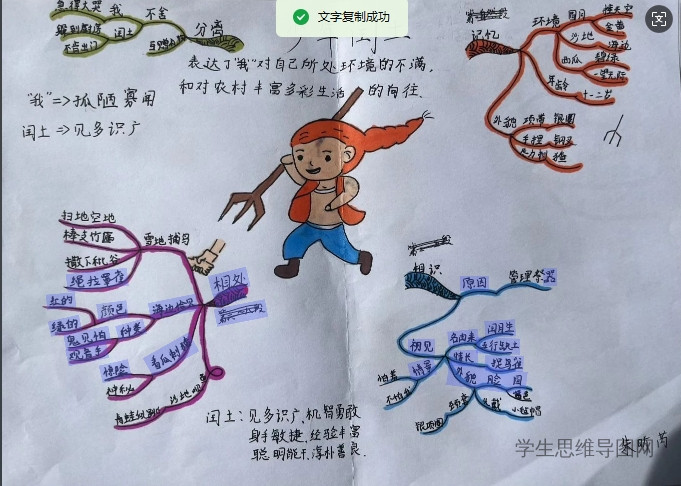 文字复制成功
急得大哭
我
不舍
躲到厨房
闰土
不肯出门
分离
表达了"我"对自己所处环境的不满,
和对农村丰富多彩生活的向往.
"我"=>孤陋寡闻
闰土=>见多识广
记忆
环境
金黄
沙地
海边
西瓜
碧绿
一望无际
年龄
十一二岁
外貌
项带
银圈
手捏
钢叉
猹
扫地空地
棒支竹匾
撒下秕谷
雪地捕鸟
相处
红的
绿的
颜色
鬼见怕
观音手
种类
看瓜刺猹
相识
原因
管理祭器
初见
名由来
闰月生
五行缺土
特长
捉鸟雀
外貌
脸
圆
情景
怕羞
不怕我
头戴
小毡帽
银项圈
闰土:见多识广、机智勇敢
身手敏捷、经验丰富
聪明能干、淳朴善良.
学生思维导图网